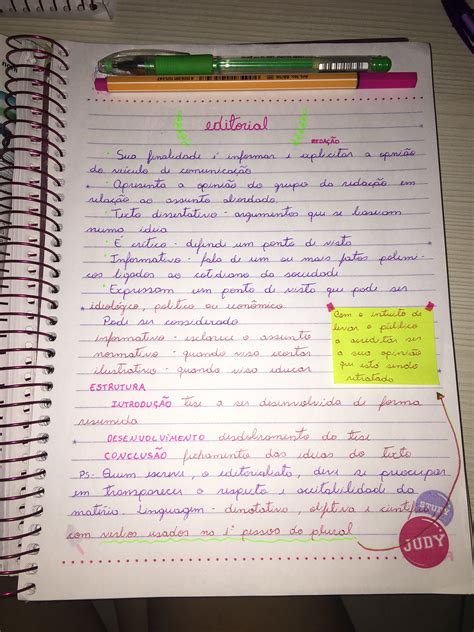 editorial
REDAÇÃO
· Sua finalidade é informar e explicitar a opinião
do veículo de comunicação
· Apresenta a opinião do grupo da redação em
relação ao assunto abordado
· Texto dissertativo - argumentos que se baseiam
numa ideia
· É crítico - defende um ponto de vista
· Informativo - fala de um ou mais fatos polêmi-
cos ligados ao cotidiano da sociedade
· Expressam um ponto de vista que pode ser
ideológico, político ou econômico
Pode ser considerado
informativo - esclarece o assunto
normativo - quando visa exortar
ilustrativo - quando visa educar
Com o intuito de
levar o público
a acreditar ser
a sua opinião
que está sendo
retratada
ESTRUTURA
INTRODUÇÃO tese a ser desenvolvida de forma
resumida
DESENVOLVIMENTO desdobramento da tese
CONCLUSÃO fechamento das ideias do texto
Ps - Quem escreve, o editorialista, deve se preocupar
em transparecer o respeito e aceitabilidade da
matéria. Linguagem - denotativa, objetiva e
com verbos usados na 1ª pessoa do plural
JUDY